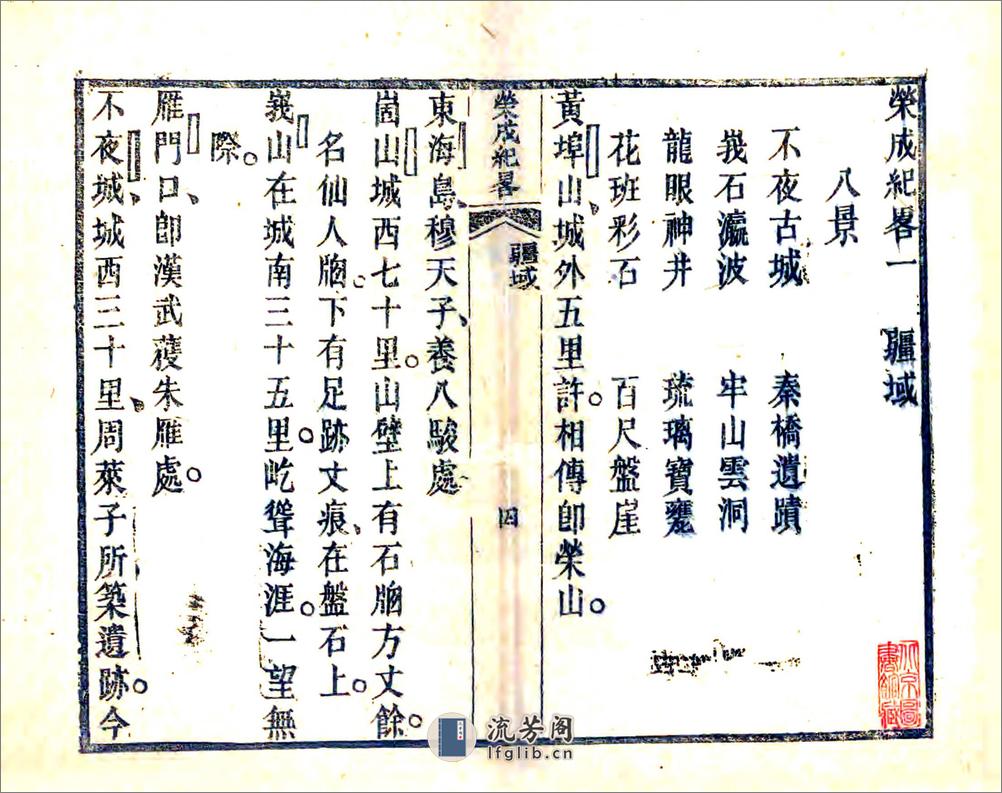 榮成紀畧一 疆域
八景
不夜古城 秦橋遺蹟
峩石瀛波 牢山雲洞
龍眼神井 琉璃寶甕
花班彩石 百尺盤崖
黃埠山、城外五里許。相傳即榮山。
榮成紀畧 疆域 四
東海島、穆天子、養八駿處
崮山城西七十里。山壁上有石牕方丈餘。
名仙人牕。下有足跡丈痕、在盤石上。
峩山在城南三十五里。屹聳海涯。一望無
際。
雁門口、即漢武獲朱雁處。
不夜城、城西三十里、周萊子所築遺跡。今
北京圖
書館藏
流芳阁
lfglib.cn